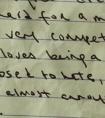 for a m
very compet
loves being a
osed to hate,
almost